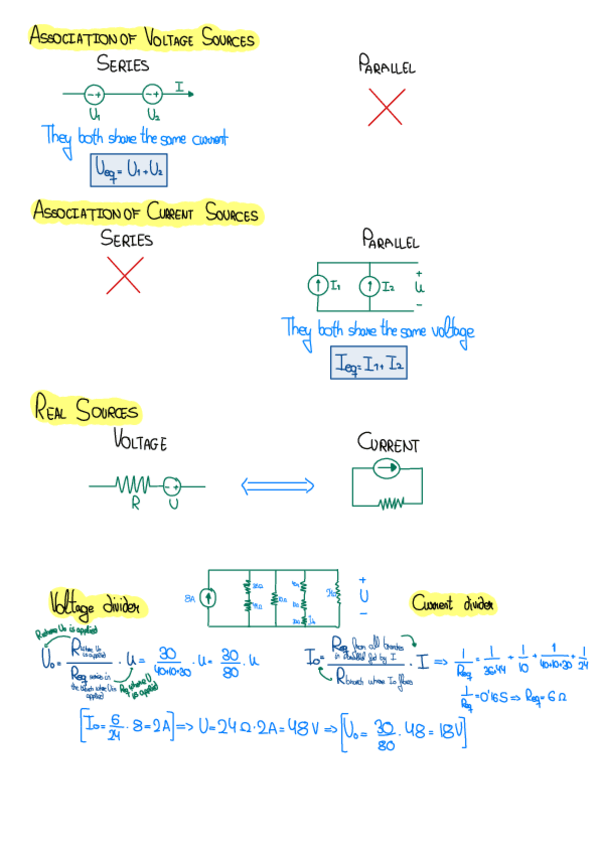 ASSOCIATION OF VOLTAGE SOURCES
SERIES
PARALLEL
- + - + I
U1 U2
They both share the same current
Ueq = U1 + U2
ASSOCIATION OF CURRENT SOURCES
SERIES
PARALLEL
I1 I2 + U -
They both share the same voltage
Ieq = I1 + I2
REAL SOURCES
VOLTAGE
CURRENT
- +
R U
8A + U -
Voltage divider
Current divider
R where Uo is applied
Uo = R where Uo is applied / Req series in the branch where U is applied · U = 30 / 40+10+30 · U = 30 / 80 · U
Req where U is applied
Io = Req from all branches / R branch where Io flows · I ⇒ 1/Req = 1/36+44 + 1/10 + 1/40+10+30 + 1/24
1/Req = 0'16 S ⇒ Req = 6 Ω
[Io = 6/24 · 8 = 2A] ⇒ U = 24 Ω · 2A = 48 V ⇒ [Uo = 30/80 · 48 = 18V]